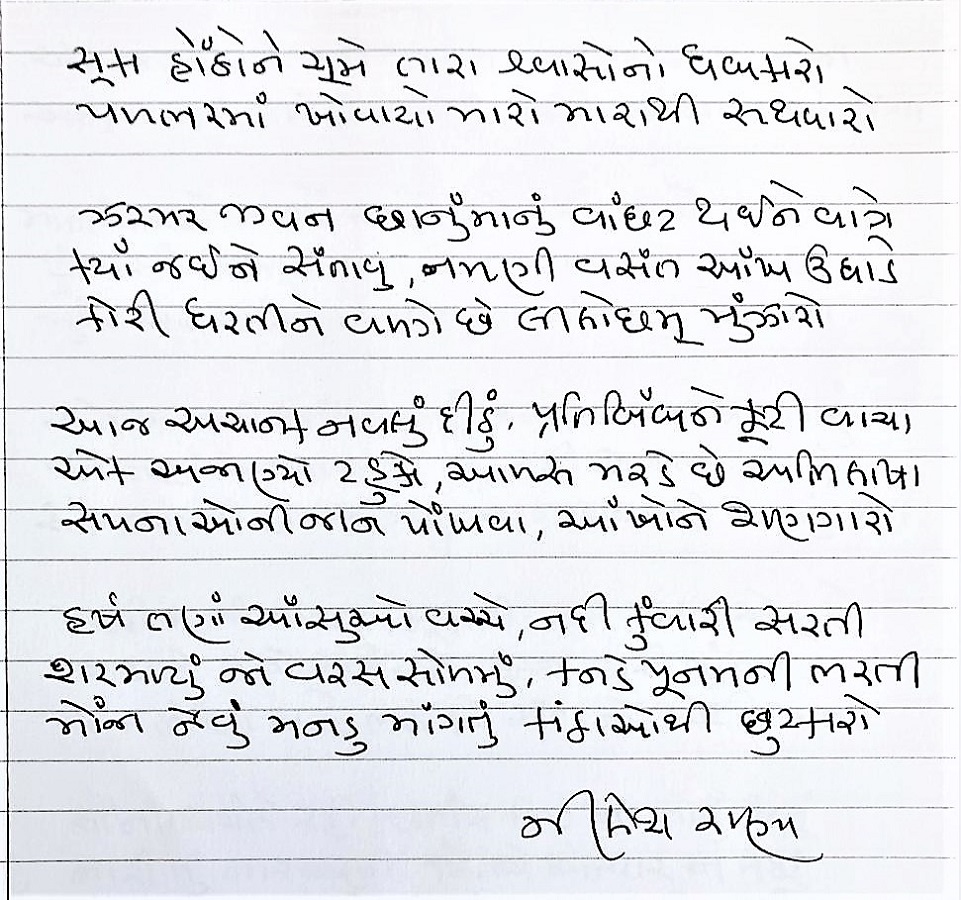 સૂક્ષ્મ હોંઠોને ચૂમે તારા શ્વાસોનો ધબકારો
પળભરમાં ખોવાયો મારો મારાથી સથવારો
ઝરમર જીવન છાનુંમાનું વાંછટ થઈને વાગે
ક્યાં જઈને સંતાવુ, નમણી વસંત આઁખ ઉઘાડે
કોરી ધરતીને વળગે છે લીલોછમ્ મુંઝારો
આજ અચાનક નવલું દીઠું, પ્રતિબિંબને ફૂટી વાચા
એક અજાણ્યો ટહુકો, આળસ મરડે છે અભિલાષા
સપનાઓની જાન પોંખવા, આઁખોને શણગારો
હર્ષ તણાં આઁસુઓ વચ્ચે, નદી કુંવારી સરતી
શરમાયું જો વરસ સોળમું, કનડે પૂનમની ભરતી
મોંજા જેવું મનડુ માઁગતું કાંઠાઓથી છુટકારો